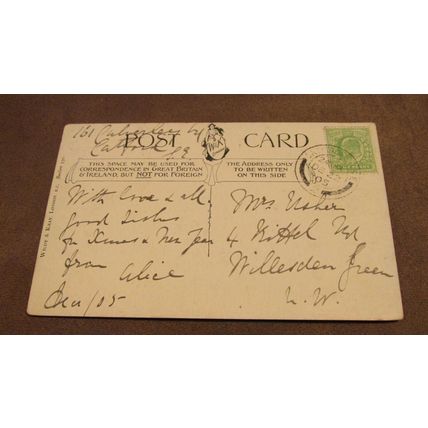 161
Catford
POST CARD
THIS SPACE MAY BE USED FOR
CORRESPONDENCE IN GREAT BRITAIN
& IRELAND, BUT NOT FOR FOREIGN
THE ADDRESS ONLY
TO BE WRITTEN
ON THIS SIDE
With love & all
good wishes
for Xmas & New Year
from Alice
Dec/05
Mrs Usher
4
Willesden Green
N.W.